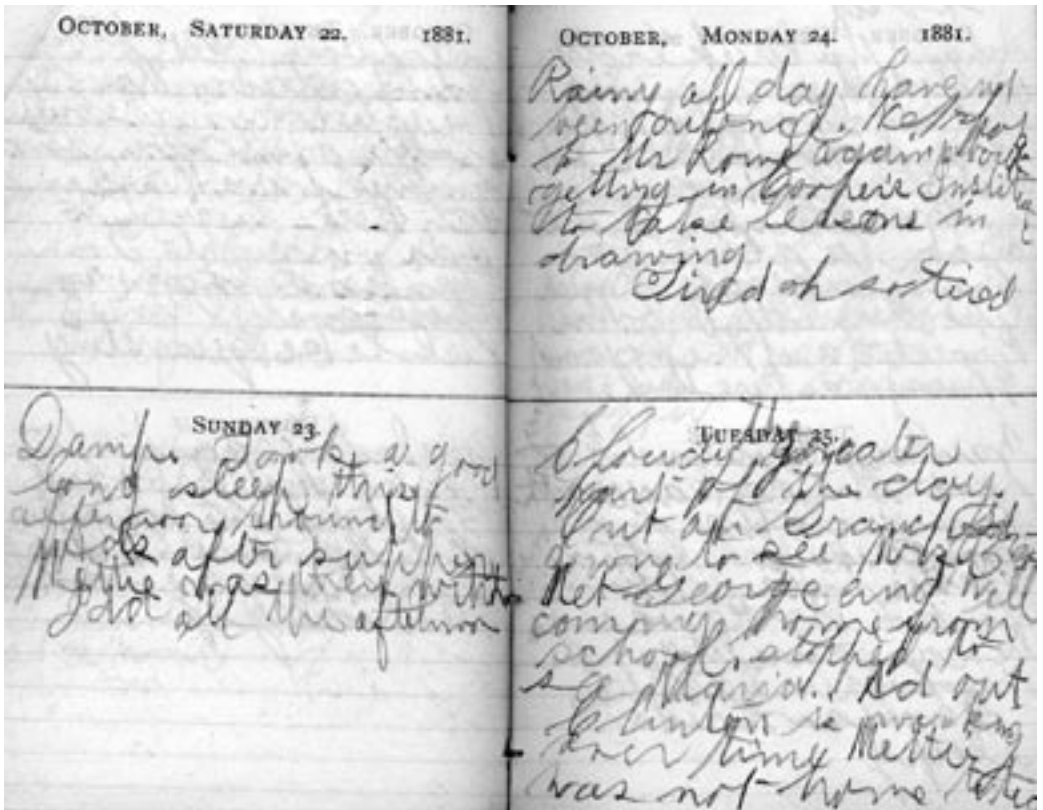 OCTOBER, SATURDAY 22. 1881.
SUNDAY 23.
Damp. Took a good
long sleep this
afternoon, round to
after supper
Mettie was they with
all the afternoon
OCTOBER, MONDAY 24. 1881.
Rainy all day have not
been out once.
to Mr Rowe again about
getting in Cooper's Institute
to take lessons in
drawing
Tired oh so tired
TUESDAY 25.
Cloudy Greater
part of the day.
Out at Grand
down to see Mrs
Met George and Will
coming home from
school, stopped to
see Maria. Ad out
Clinton is working
over time Metties
was not home